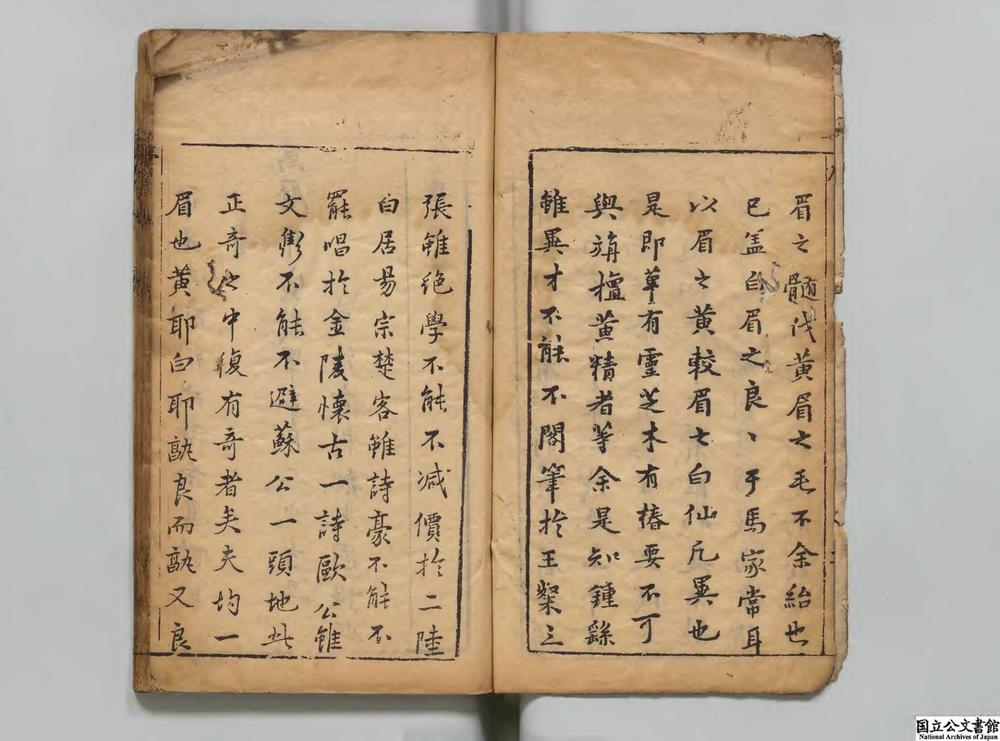 眉之髓伐黄眉之毛不余紿也
已盖白眉之良〻于馬家常耳
以眉之黄較眉之白仙凡異也
是即草有靈芝木有椿要不可
與旃檀黄精者等余是知鍾繇
雖異才不能不閣筆於王粲三
張雖絶學不能不减價於二陸
白居易宗楚客雖詩豪不能不
罷唱於金陵懷古一詩歐公雖
文衡不能不避蘇公一頭地此
正奇之中復有奇者矣夫均一
眉也黄耶白耶孰良而孰又良
国立公文書館
National Archives of Japan